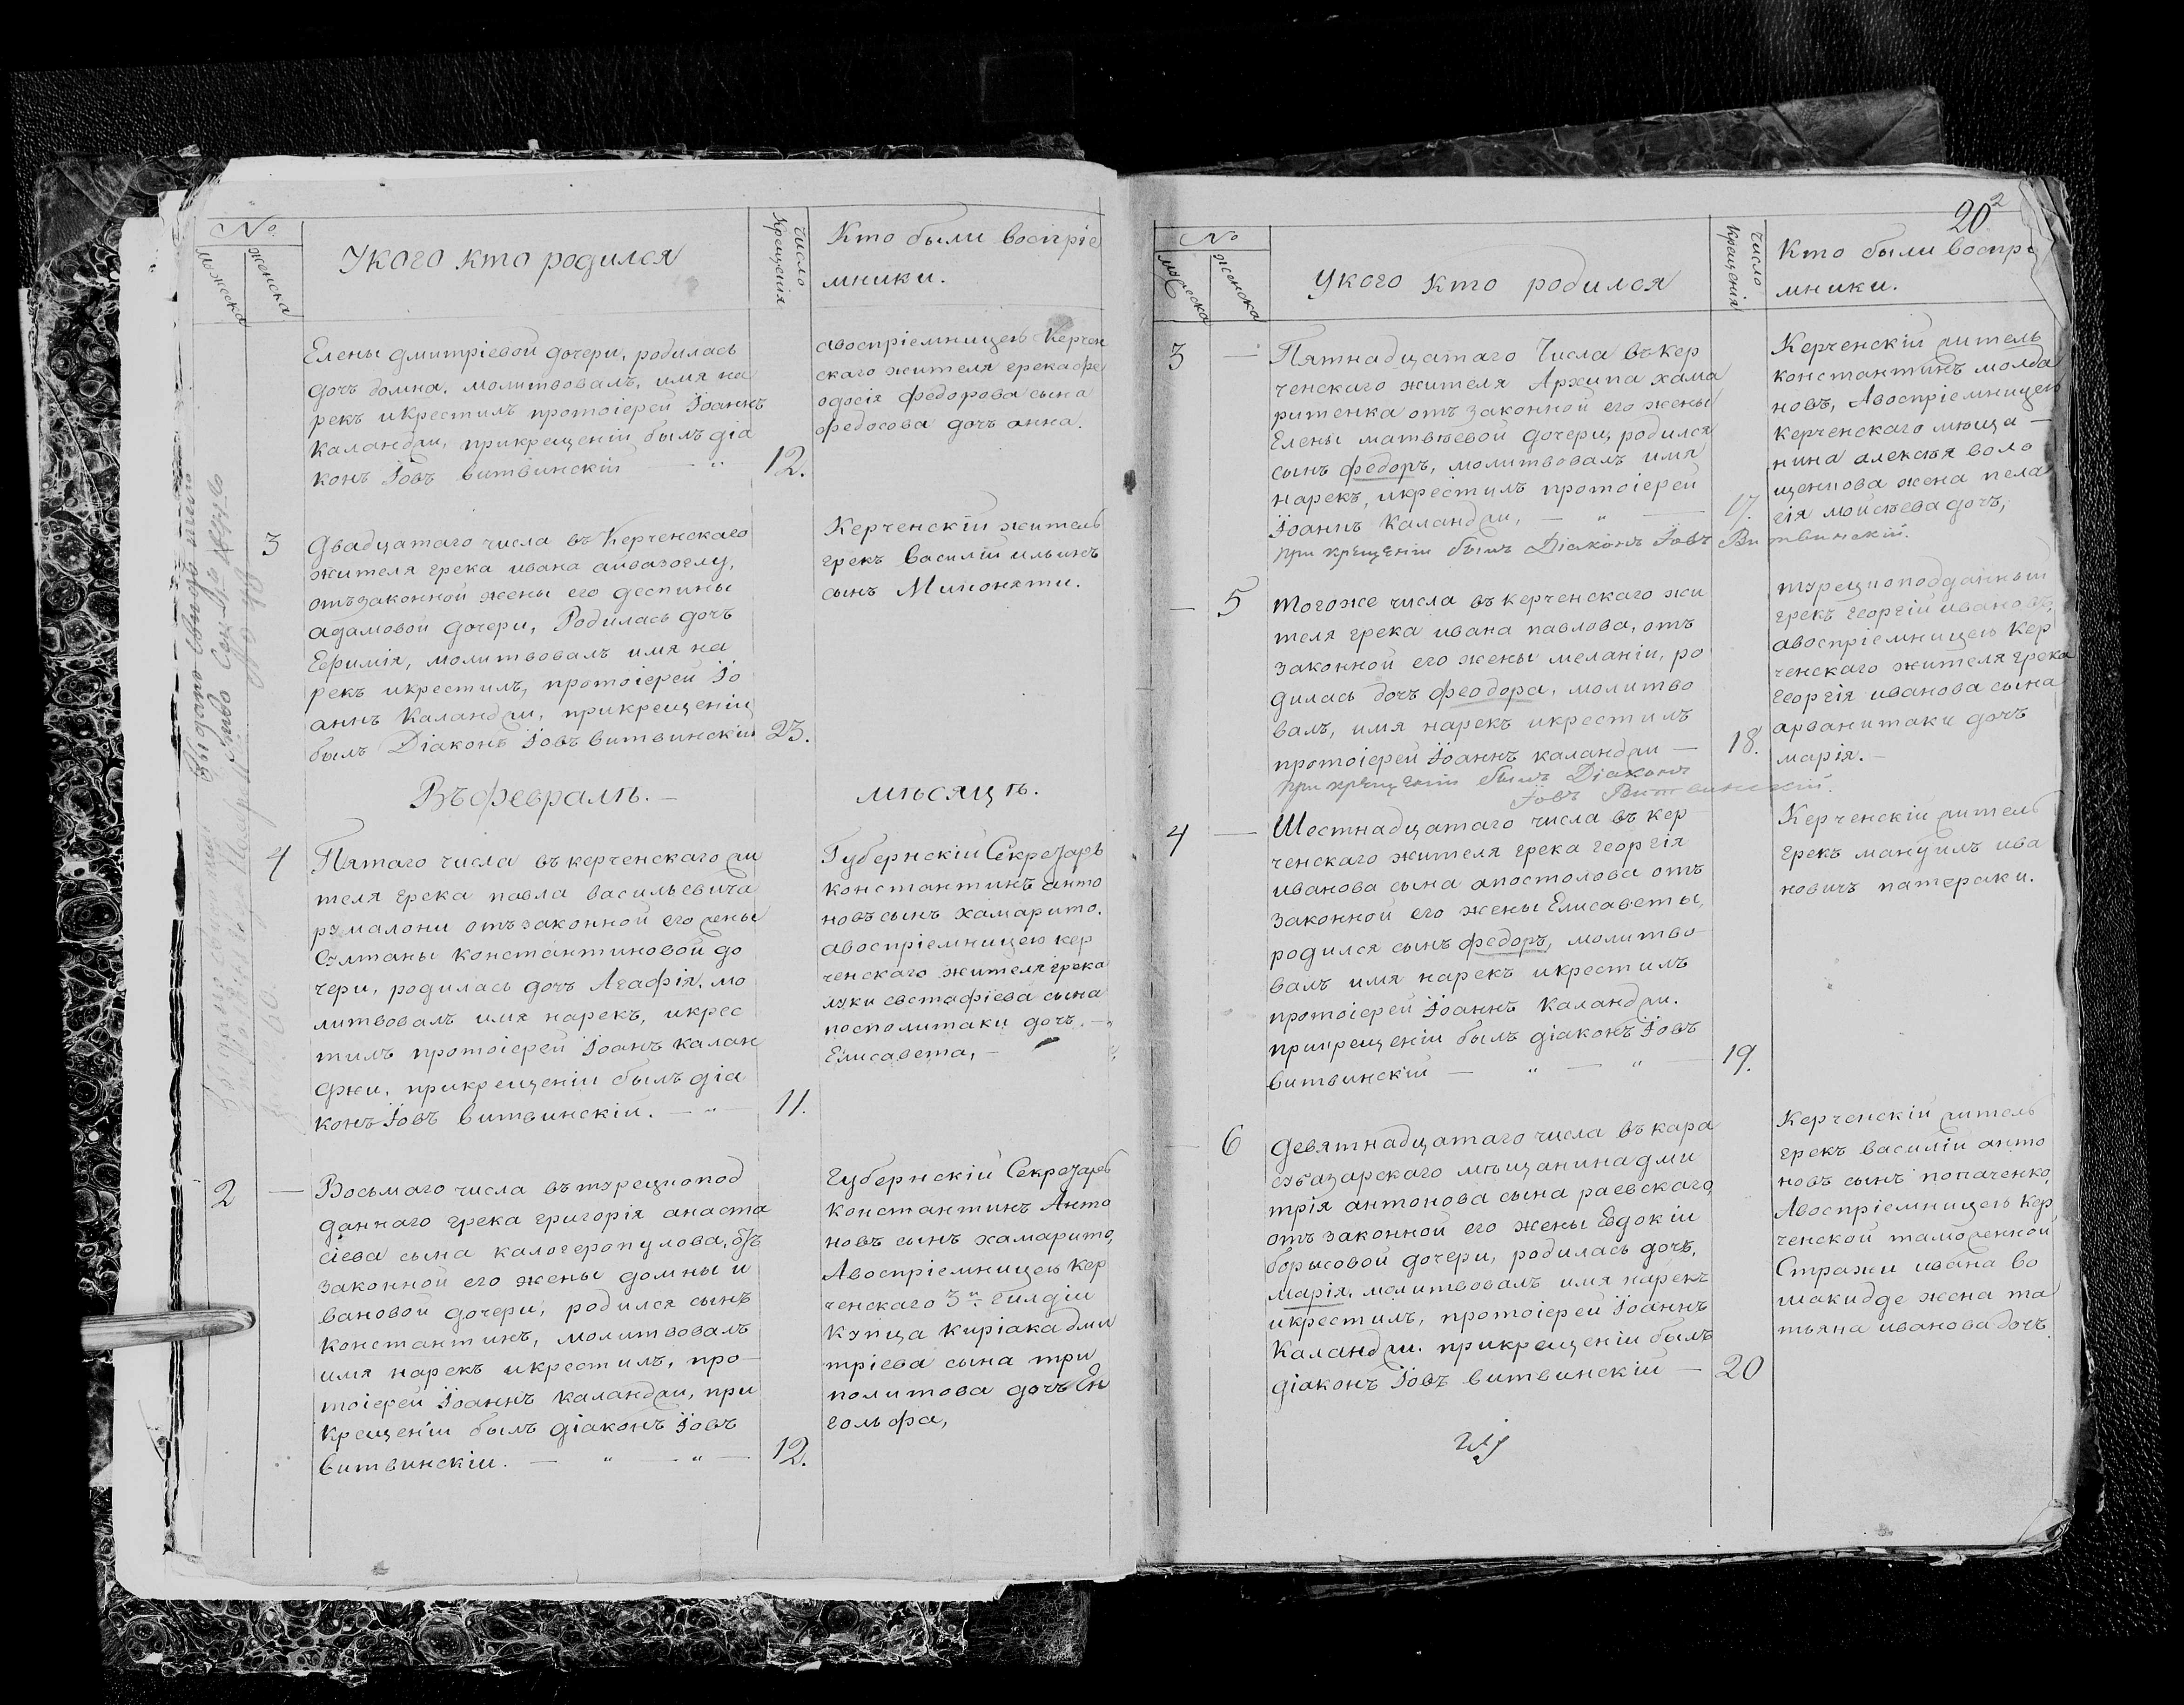 №
мужеска
женска
Укого кто родился
число
крещенія
Кто были воспріе
мники.
Елены дмитріевой дочери, родилась
дочь домна. молитвовалъ, имя на
рекъ икрестилъ протоіерей Іоаннъ
Каланджи, прикрещеніи былъ діа
конъ Іовъ витвинскій
12.
авоспріемницею Керчен
скаго жителя грека фе
одосія федорова сына
федосова дочь анна.
3
двадцатаго числа въ Керченскаго
жителя грека ивана айвазоглу,
отъзаконной жены его деспины
адамовой дочери, Родилась дочь
Ефимія, молитвовалъ имя на
рекъ икрестилъ, протоіерей Іо
аннъ Каланджи, прикрещеніи
былъ Діаконъ Іовъ витвинскій
23.
Керченскій житель
грекъ василій ильинъ
сынъ
Въ февралѣ. — мѣсяцѣ.
4
Пятаго числа въ керченскаго жи
теля грека павла васильевича
румалони отъзаконной его жены
Султаны константиновой до
чери, родилась дочь Агафія, мо
литвовалъ имя нарекъ, икрес
тилъ протоіерей Іоанъ калан
джи, прикрещеніи былъ діа
конъ Іовъ витвинскій.
11.
Губернскій Секретарь
константинъ анто
новъ сынъ хамарито.
авоспріемницею кер
ченскаго жителя грека
луки евстафіева сына
посполитаки дочь
Елисавета,
2
Восьмаго числа въ турецкопод
даннаго грека григорія анаста
сіева сына калогеропулова, отъ
законной его жены домны и
вановой дочери, родился сынъ
константинъ, молитвовалъ
имя нарекъ икрестилъ, про
тоіерей Іоаннъ каланджи, при
крещеніи былъ діаконъ Іовъ
витвинскій.
12.
Губернскій Секретарь
константинъ Анто
новъ сынъ хамарито,
Авоспріемницею кер
ченскаго 3й гилдіи
купца киріака дми
тріева сына три
политова дочь Ен
гольфа,
20
2
№
мужеска
женска
Укого кто родился
число
крещенія
Кто были воспріе
мники.
3
Пятнадцатаго Числа въ кер
ченскаго жителя Архипа хама
ритенка отъ законной его жены
Елены матвѣевой дочери, родился
сынъ федоръ, молитвовалъ имя
нарекъ, икрестилъ протоіерей
Іоаннъ каланджи,
17.
при крещеніи былъ Діаконъ Іовъ Витвинскій.
Керченскій житель
константинъ молда
новъ, Авоспріемницею
керченскаго мѣща
нина алексѣя воло
щенкова жена пела
гія мойсѣева дочь,
5
тогоже числа въ керченскаго жи
теля грека ивана павлова, отъ
законной его жены меланіи, ро
дилась дочь феодора, молитво
валъ, имя нарекъ икрестилъ
протоіерей Іоаннъ каланджи
18.
при крещеніи былъ Діаконъ
Іовъ Витвинскій.
турецкоподданный
грекъ георгій ивановъ,
авоспріемницею Кер
ченскаго жителя грека
георгія иванова сына
арванитаки дочь
марія.
4
Шестнадцатаго числа въ кер
ченскаго жителя грека георгія
иванова сына апостолова отъ
законной его жены Елисаветы,
родился сынъ федоръ, молитво
валъ имя нарекъ икрестилъ
протоіерей Іоаннъ каланджи.
прикрещеніи былъ діаконъ Іовъ
витвинскій
19.
Керченскій житель
грекъ мануилъ ива
новичъ патераки.
6
девятнадцатаго числа въ кара
субазарскаго мѣщанина дми
трія антонова сына раевскаго,
отъ законной его жены Евдокіи
борисовой дочери, родилась дочь,
марія, молитвовалъ имя нарекъ
икрестилъ, протоіерей Іоаннъ
Каланджи. прикрещеніи былъ
діаконъ Іовъ витвинскій
20
Керченскій житель
грекъ василій анто
новъ сынъ попаченко,
Авоспріемницею кер
ченской таможенной
Стражи ивана во
шакидзе жена та
тьяна иванова дочь